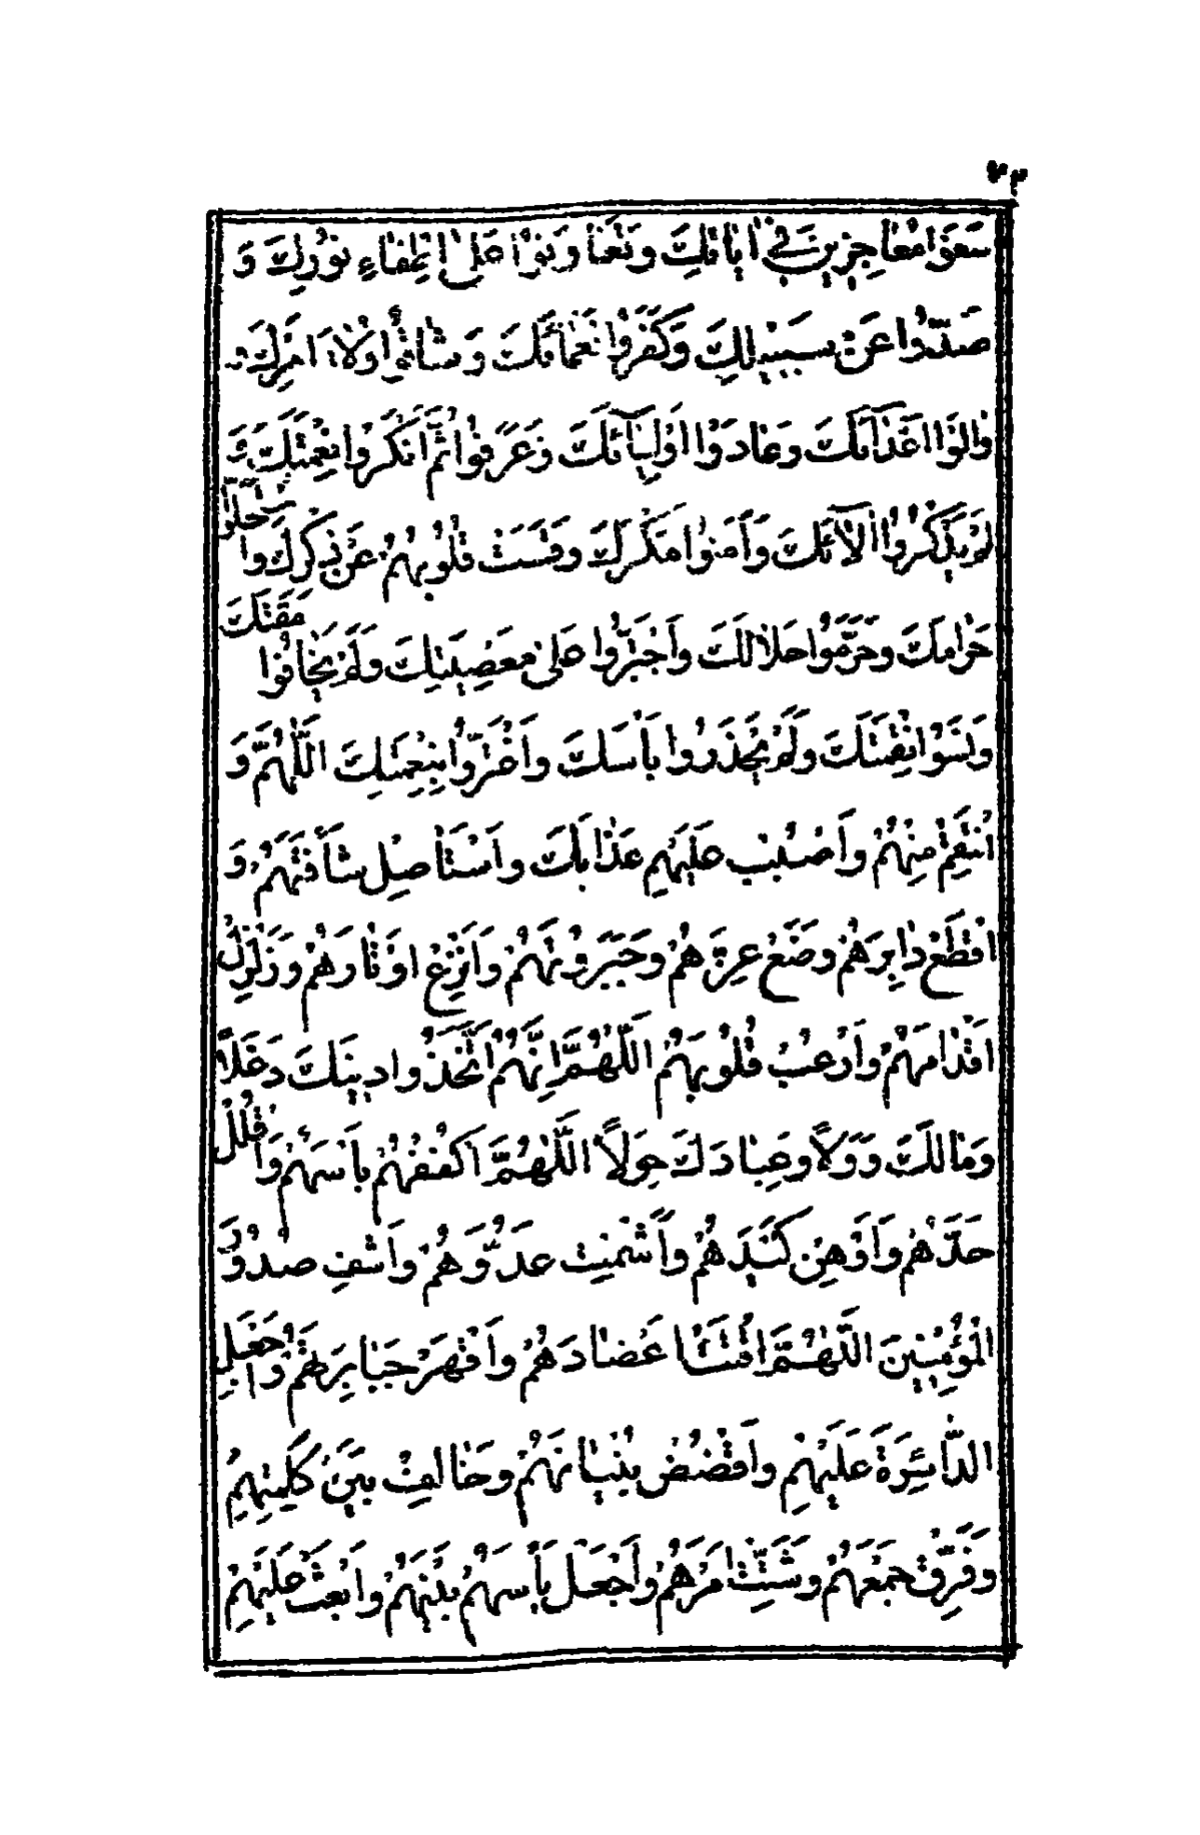 ٢٣
سَعَوْا مُعَاجِزِينَ فِي اٰيَاتِكَ وَتَعَاوَنُوْا عَلٰى اِطْفَاءِ نُورِكَ وَ
صَدُّوا عَنْ سَبِيْلِكَ وَكَفَرُوا نَعْمَائَكَ وَشَاقُّوا وُلَاةَ اَمْرِكَ وَ
وَالَوْا اَعْدَائَكَ وَعَادَوْا اَوْلِيَائَكَ وَعَرَفُوا ثُمَّ اَنْكَرُوا نِعْمَتَكَ وَ
لَمْ يَذْكُرُوا اٰلَائَكَ وَاَمِنُوا مَكْرَكَ وَقَسَتْ قُلُوبُهُمْ عَنْ ذِكْرِكَ وَاسْتَحَلُّوا
حَرَامَكَ وَحَرَّمُوا حَلَالَكَ وَاجْتَرَؤُا عَلٰى مَعْصِيَتِكَ وَلَمْ يَخَافُوا مَقْتَكَ
وَنَسُوْا نِقْمَتَكَ وَلَمْ يَحْذَرُوا بَاْسَكَ وَاغْتَرُّوا بِنِعْمَتِكَ اَللّٰهُمَّ وَ
انْتَقِمْ مِنْهُمْ وَاصْبُبْ عَلَيْهِمْ عَذَابَكَ وَاسْتَاْصِلْ شَاْفَتَهُمْ وَ
اقْطَعْ دَابِرَهُمْ وَضَعْ عِزَّهُمْ وَجَبَرُوتَهُمْ وَانْزِعْ اَوْتَارَهُمْ وَزَلْزِلْ
اَقْدَامَهُمْ وَارْعِبْ قُلُوبَهُمْ اَللّٰهُمَّ اِنَّهُمُ اتَّخَذُوا دِينَكَ دَغَلًا
وَمَالَكَ دُوَلًا وَعِبَادَكَ خَوَلًا اَللّٰهُمَّ اكْفُفْهُمْ بَاْسَهُمْ وَافْلُلْ
حَدَّهُمْ وَاَوْهِنْ كَيْدَهُمْ وَاَشْمِتْ عَدُوَّهُمْ وَاشْفِ صُدُورَ
الْمُؤْمِنِيْنَ اَللّٰهُمَّ افْتُتْ اَعْضَادَهُمْ وَاقْهَرْ جَبَابِرَتَهُمْ وَاجْعَلِ
الدَّائِرَةَ عَلَيْهِمْ وَاقْضُضْ بُنْيَانَهُمْ وَخَالِفْ بَيْنَ كَلِمَتِهِمْ
وَفَرِّقْ جَمْعَهُمْ وَشَتِّتْ اَمْرَهُمْ وَاجْعَلْ بَاْسَهُمْ بَيْنَهُمْ وَابْعَثْ عَلَيْهِمْ